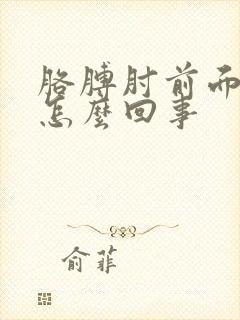 胳膊肘前而
怎麼回事
俞菲